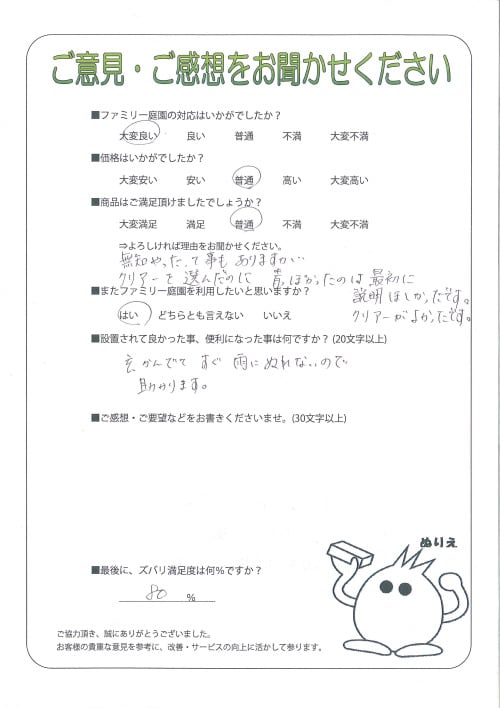 ご意見・ご感想をお聞かせください
■ファミリー庭園の対応はいかがでしたか？
大変良い 良い 普通 不満 大変不満
■価格はいかがでしたか？
大変安い 安い 普通 高い 大変高い
■商品はご満足頂けましたでしょうか？
大変満足 満足 普通 不満 大変不満
⇒よろしければ理由をお聞かせください。
無知やったって事もありますが…
クリアーを選んだのに 青っぽかったのは 最初に
説明ほしかったです。
クリアーがよかったです。
■またファミリー庭園を利用したいと思いますか？
はい どちらとも言えない いいえ
■設置されて良かった事、便利になった事は何ですか？ (20文字以上)
玄かんでて すぐ 雨にぬれないので
助かります。
■ご感想・ご要望などをお書きくださいませ。(30文字以上)
ぬりえ
■最後に、ズバリ満足度は何％ですか？
80 %
ご協力頂き、誠にありがとうございました。
お客様の貴重な意見を参考に、改善・サービスの向上に活かして参ります。